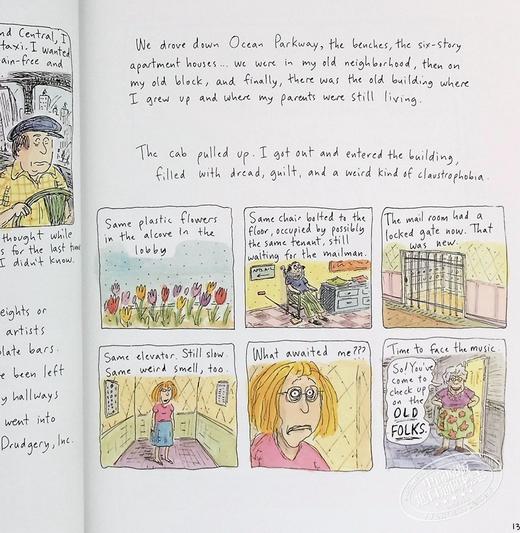 nd Central, I
taxi. I wanted
ain-free and
thought while
s for the last time
I didn't know.
eights or
artists
late bars.
e been left
y hallways
went into
Drudgery, Inc.
We drove down Ocean Parkway, the benches, the six-story
apartment houses... we were in my old neighborhood, then on
my old block, and finally, there was the old building where
I grew up and where my parents were still living.
The cab pulled up. I got out and entered the building,
filled with dread, guilt, and a weird kind of claustrophobia.
Same plastic flowers
in the alcove in the
lobby
Same chair bolted to the
floor, occupied by possibly
the same tenant, still
waiting for the mailman.
The mail room had a
locked gate now. That
was new.
Same elevator. Still slow.
Same weird smell, too.
What awaited me???
Time to face the music.
So! You've
come to
check up
on the
OLD
FOLKS.
13